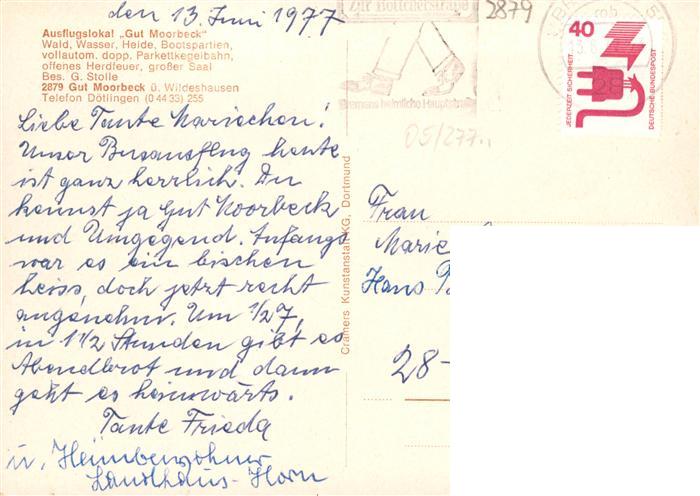 den 13. Juni 1977
Ausflugslokal „Gut Moorbeck"
Wald, Wasser, Heide, Bootspartien,
vollautom. dopp. Parkettkegelbahn,
offenes Herdfeuer, großer Saal
Bes. G. Stolle
2879 Gut Moorbeck ü. Wildeshausen
Telefon Dötlingen (0 44 33) 255
Liebe Tante Mariechen!
Unser Busausflug heute
ist ganz herrlich. Du
kennst ja Gut Moorbeck
und Umgegend. Anfangs
war es ein bischen
heiss, doch jetzt recht
angenehm. Um 1/27,
in 1 1/2 Stunden gibt es
Abendbrot und dann
geht es heimwärts.
Tante Frieda
u. Heimbewohner
Landhaus-Horn
Cramers Kunstanstalt KG, Dortmund
zur Böttcherstraße
Bremens heimliche Hauptstraße
2879
05/277
40
JEDERZEIT SICHERHEIT
DEUTSCHE BUNDESPOST
28
Frau
Marie
Hans
28-